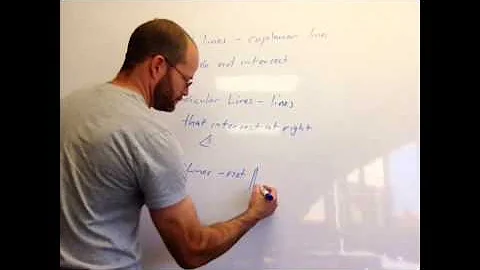 lines - coplanar lin
do not intersect
cular Lines - lines
that intersect at right
∠
Lines - not ||